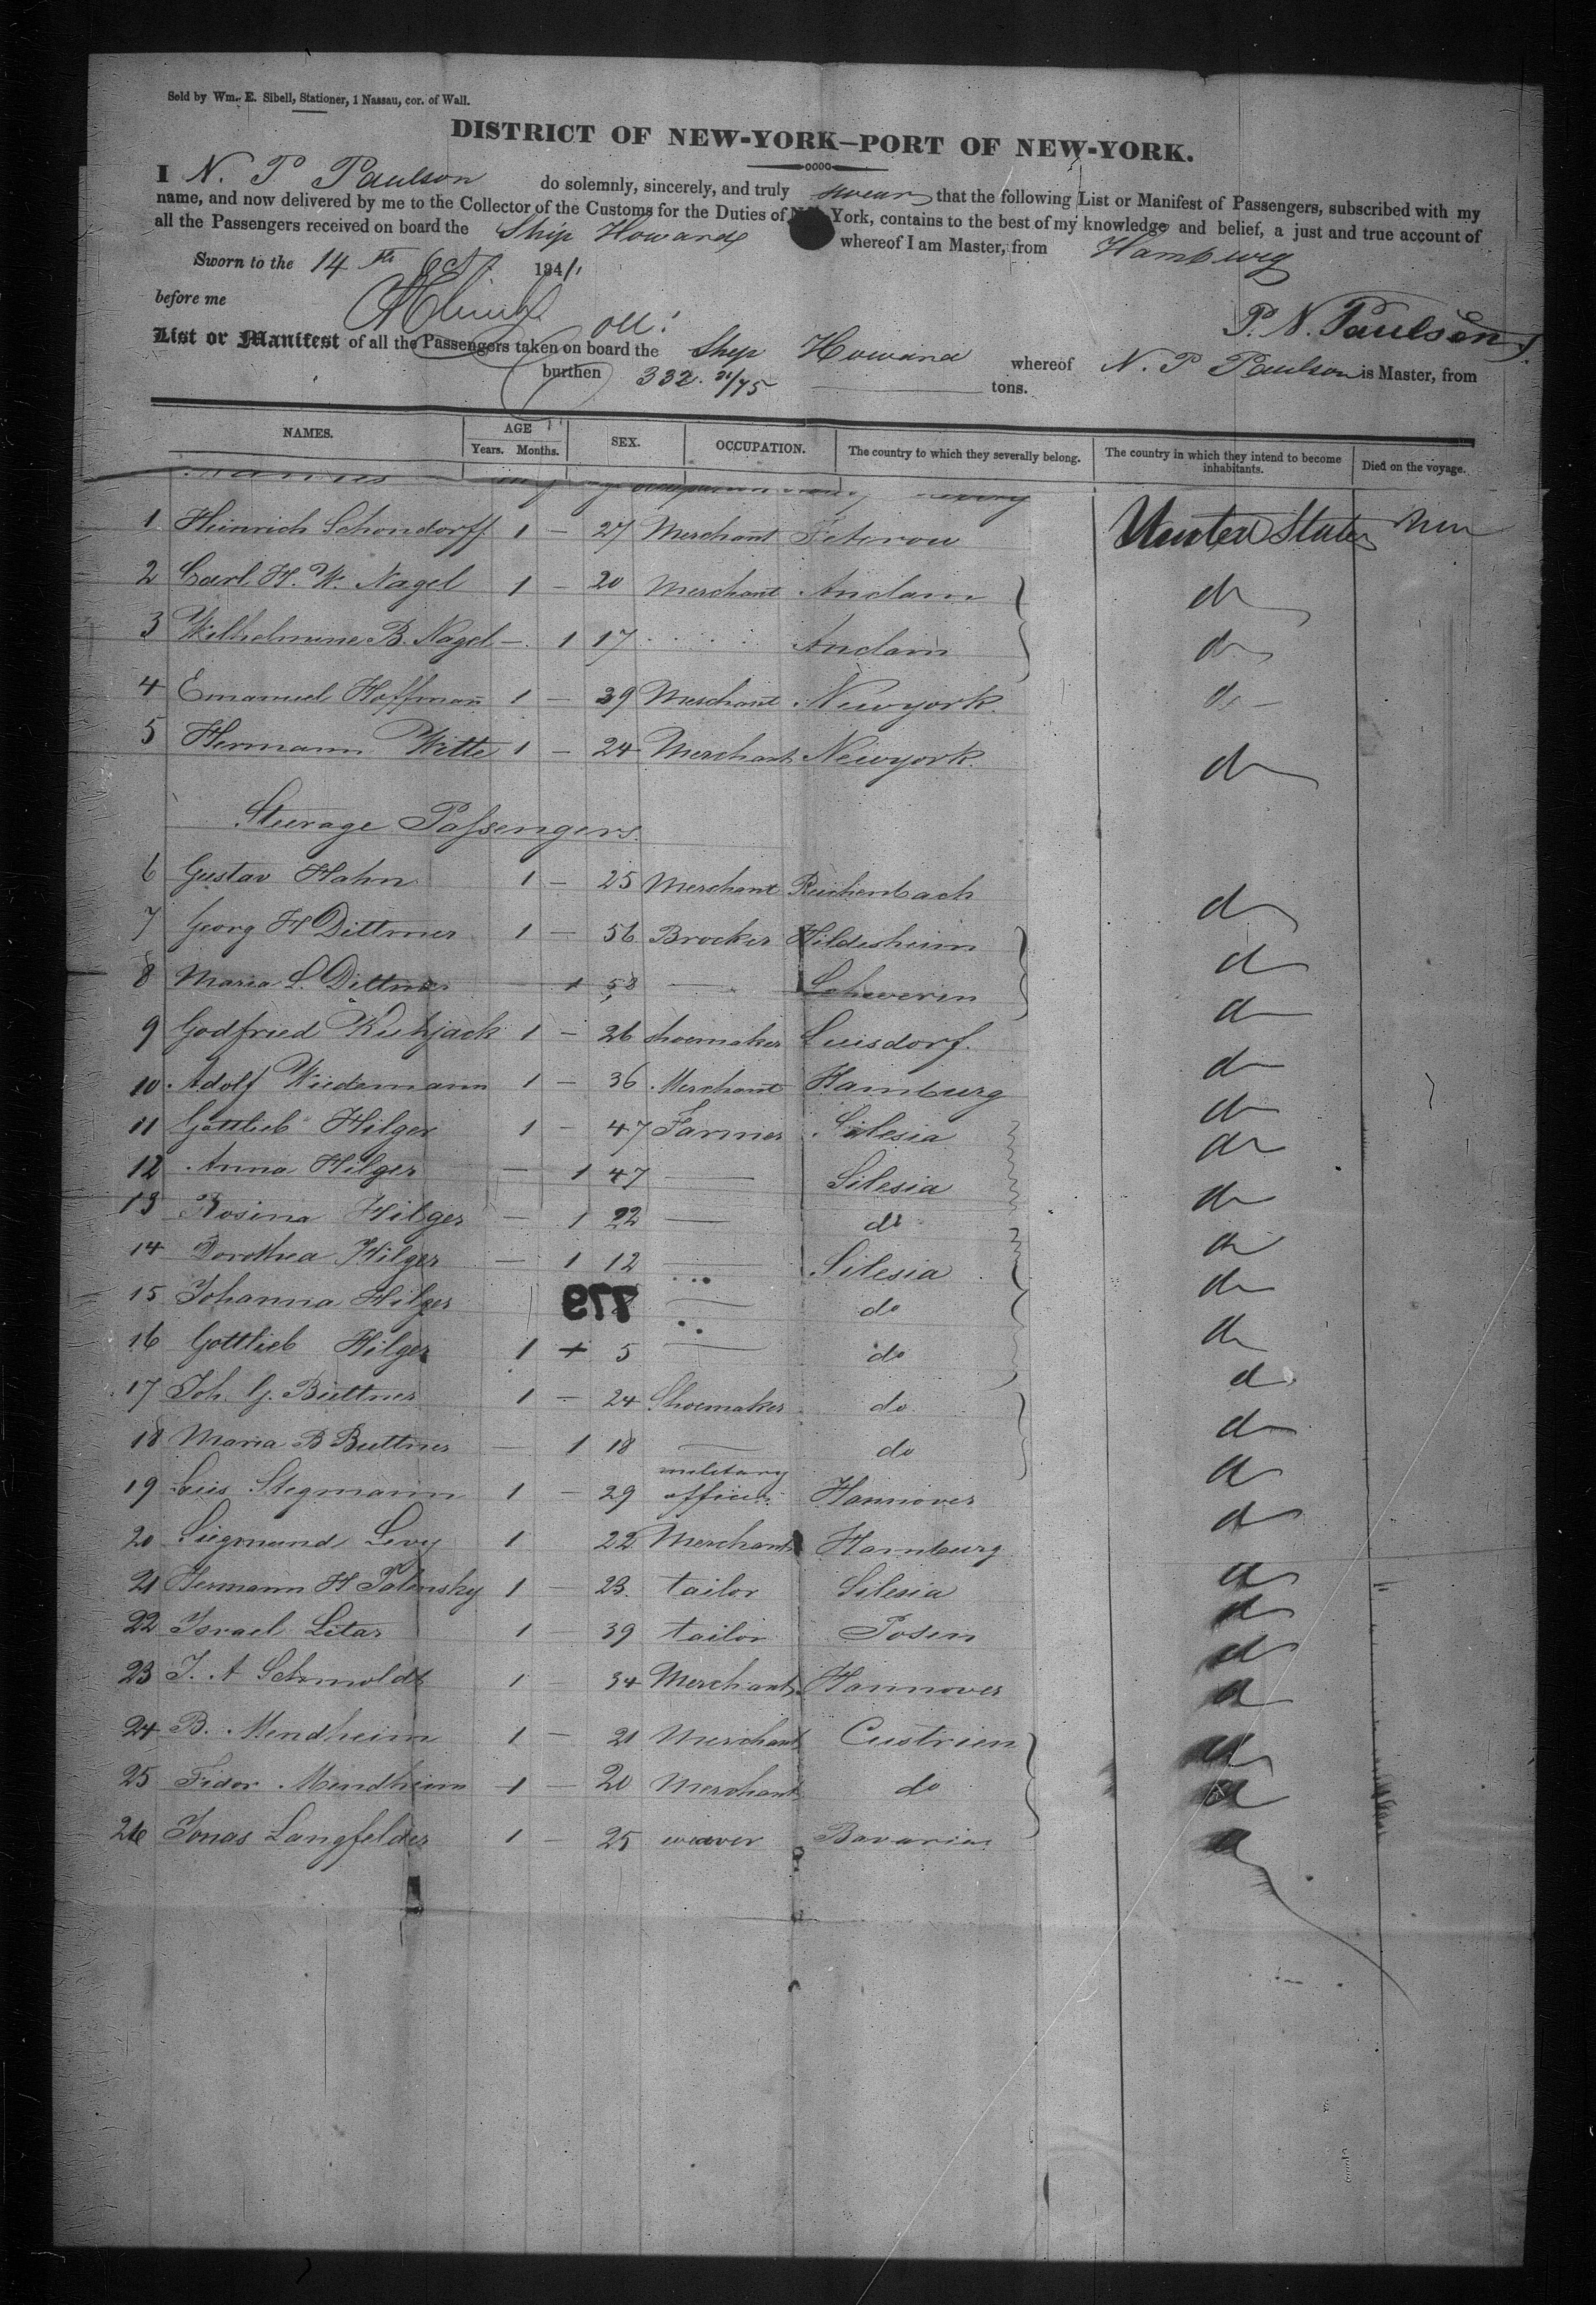 Sold by Wm. E. Sibell, Stationer, 1 Nassau, cor. of Wall.
DISTRICT OF NEW-YORK—PORT OF NEW-YORK.
I N. P. Paulson do solemnly, sincerely, and truly swear that the following List or Manifest of Passengers, subscribed with my
name, and now delivered by me to the Collector of the Customs for the Duties of York, contains to the best of my knowledge and belief, a just and true account of
all the Passengers received on board the Ship Howard whereof I am Master, from Hamburg
Sworn to the 14th Oct 1841
before me
P. N. Paulsen
List or Manifest of all the Passengers taken on board the Ship Howard whereof N. P Paulson is Master, from
burthen 332. 21/75 tons.
NAMES. AGE SEX. OCCUPATION. The country to which they severally belong. The country in which they intend to become inhabitants. Died on the voyage.
Years. Months.
1 Heinrich Schondorff 1 — 27 Merchant Teterow United States
2 Carl H. W. Nagel 1 — 20 Merchant Anclam do
3 Wilhelmine B. Nagel — 1 17 Anclam do
4 Emanuel Hoffmann 1 — 39 Merchant Newyork. do
5 Hermann Witte 1 — 24 Merchant Newyork. do
Steerage Passengers.
6 Gustav Hahn 1 — 25 Merchant Reichenbach do
7 Georg H Dittmer 1 — 56 Brocker Hildesheim do
8 Maria L. Dittmer — 1 58 — Schwerin do
9 Godfried Kuhjack 1 — 26 shoemaker Luisdorf. do
10 Adolf Wiedemann 1 — 36 Merchant Hamburg do
11 Gottlieb Hilger 1 — 47 Farmer Silesia do
12 Anna Hilger — 1 47 — Silesia do
13 Rosina Hilger — 1 22 — do do
14 Dorothea Hilger — 1 12 — Silesia do
15 Johanna Hilger — do do
779
16 Gottlieb Hilger 1 + 5 — do do
17 Joh. G. Buttner 1 — 24 Shoemaker do do
18 Maria B Buttner — 1 18 — do do
19 Luis Stegmann 1 — 29 military officer Hannover do
20 Siegmund Levy 1 22 Merchant Hamburg do
21 Hermann H Palinsky 1 — 23. tailor Silesia do
22 Israel Litar 1 — 39 tailor Posen do
23 J. A Schmoldt 1 — 34 Merchant Hannover do
24 B. Mendheim 1 — 21 Merchant Custrien do
25 Isidor Mendheim 1 — 20 Merchant do do
26 Jonas Langfelder 1 — 25 weaver Bavaria do